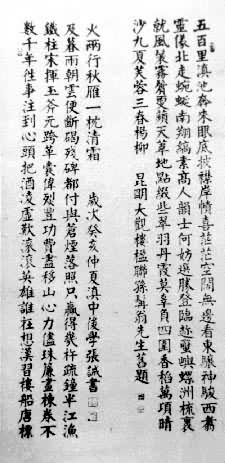 五百里滇池奔來眼底披襟岸幘喜茫茫空闊無邊看東驤神駿西翥
靈儀北走蜿蜒南翔縞素高人韻士何妨選勝登臨趁蟹嶼螺洲梳裹
就風鬟霧鬢更蘋天葦地點綴些翠羽丹霞莫辜負四圍香稻萬頃晴
沙九夏芙蓉三春楊柳 昆明大觀樓楹聯孫髯翁先生舊題
數千年往事注到心頭把酒凌虛歎滾滾英雄誰在想漢習樓船唐標
鐵柱宋揮玉斧元跨革囊偉烈豐功費盡移山心力儘珠簾畫棟卷不
及暮雨朝雲便斷碣殘碑都付與蒼煙落照只贏得幾杵疏鐘半江漁
火兩行秋雁一枕清霜 歲次癸亥仲夏滇中後學張誠書